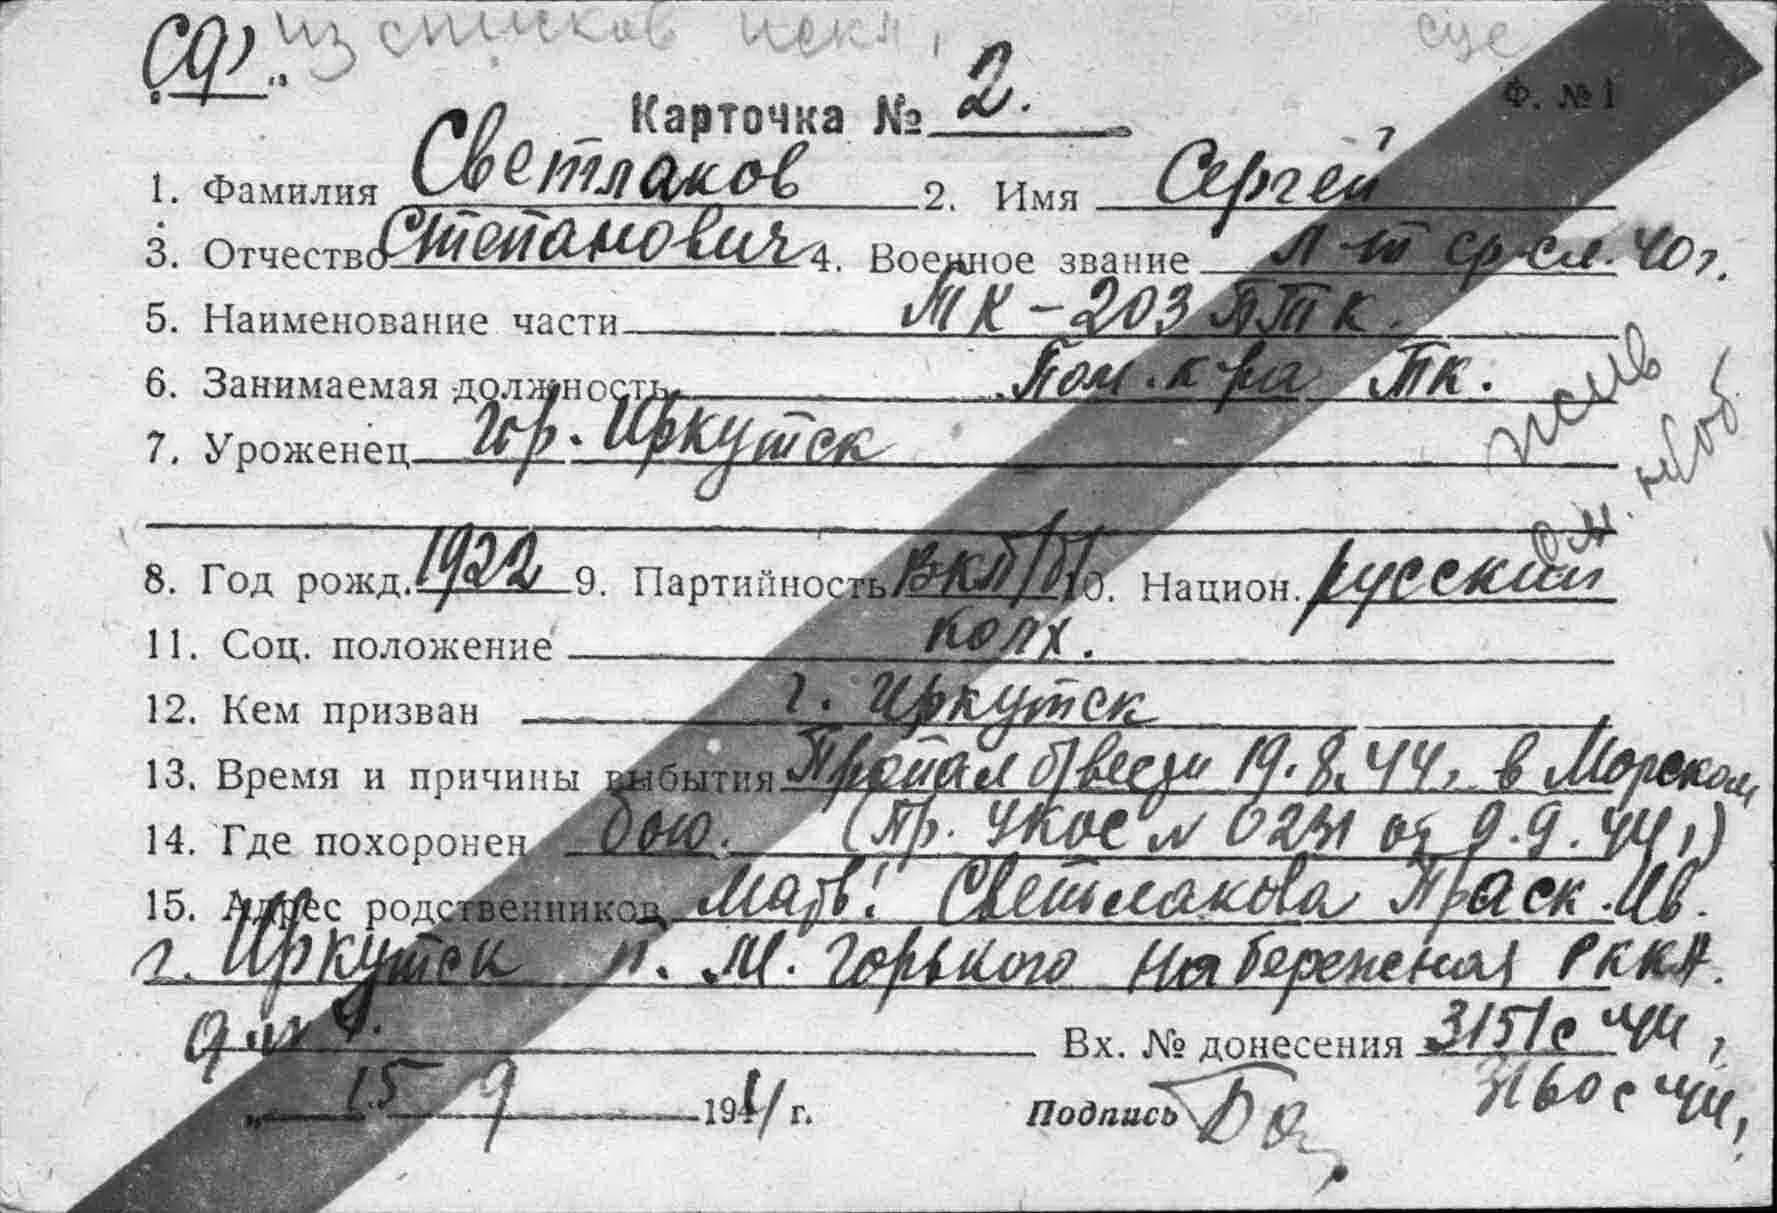 СФ. из списков искл.
Ф. № 1
Карточка № 2.
1. Фамилия Светлаков 2. Имя Сергей
3. Отчество Степанович 4. Военное звание л-т ср. сл. 40 г.
5. Наименование части ТК-203 ПТК.
6. Занимаемая должность Пом. к-ра ТК.
7. Уроженец гор. Иркутск
жив
см. на об.
8. Год рожд. 1922 9. Партийность ВКП/б/ 10. Национ. русский
11. Соц. положение колх.
12. Кем призван г. Иркутск
13. Время и причины выбытия Пропал б/вести 19.8.44 г. в Морском
14. Где похоронен бою. (Пр. УКОС № 0231 от 9.9.44 г.)
15. Адрес родственников Мать: Светлакова Праск. Ив.
г. Иркутск п. М. Горького Набережная РККА.
Вх. № донесения 3151с 44 г.
3160с 44 г.
15 9 1944 г. Подпись